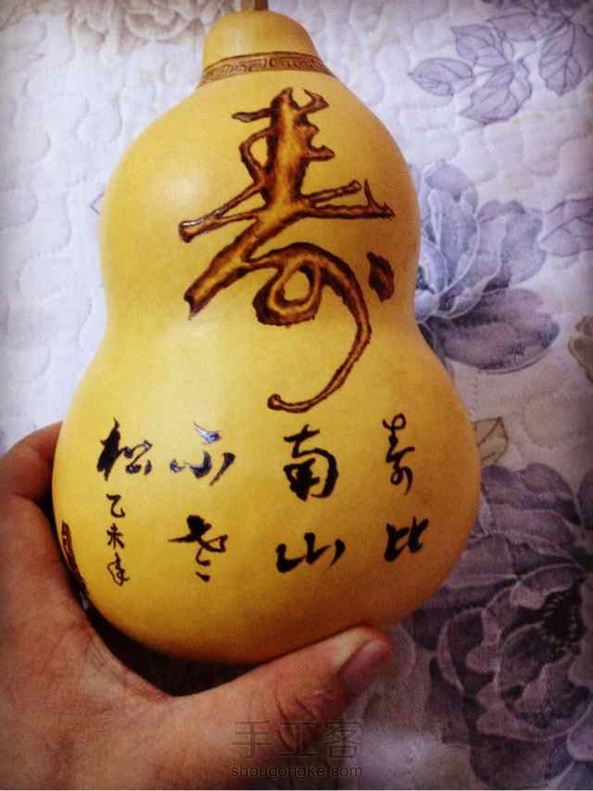 寿
寿比
南山
不老
松
乙未年
手工客
shougongke.com